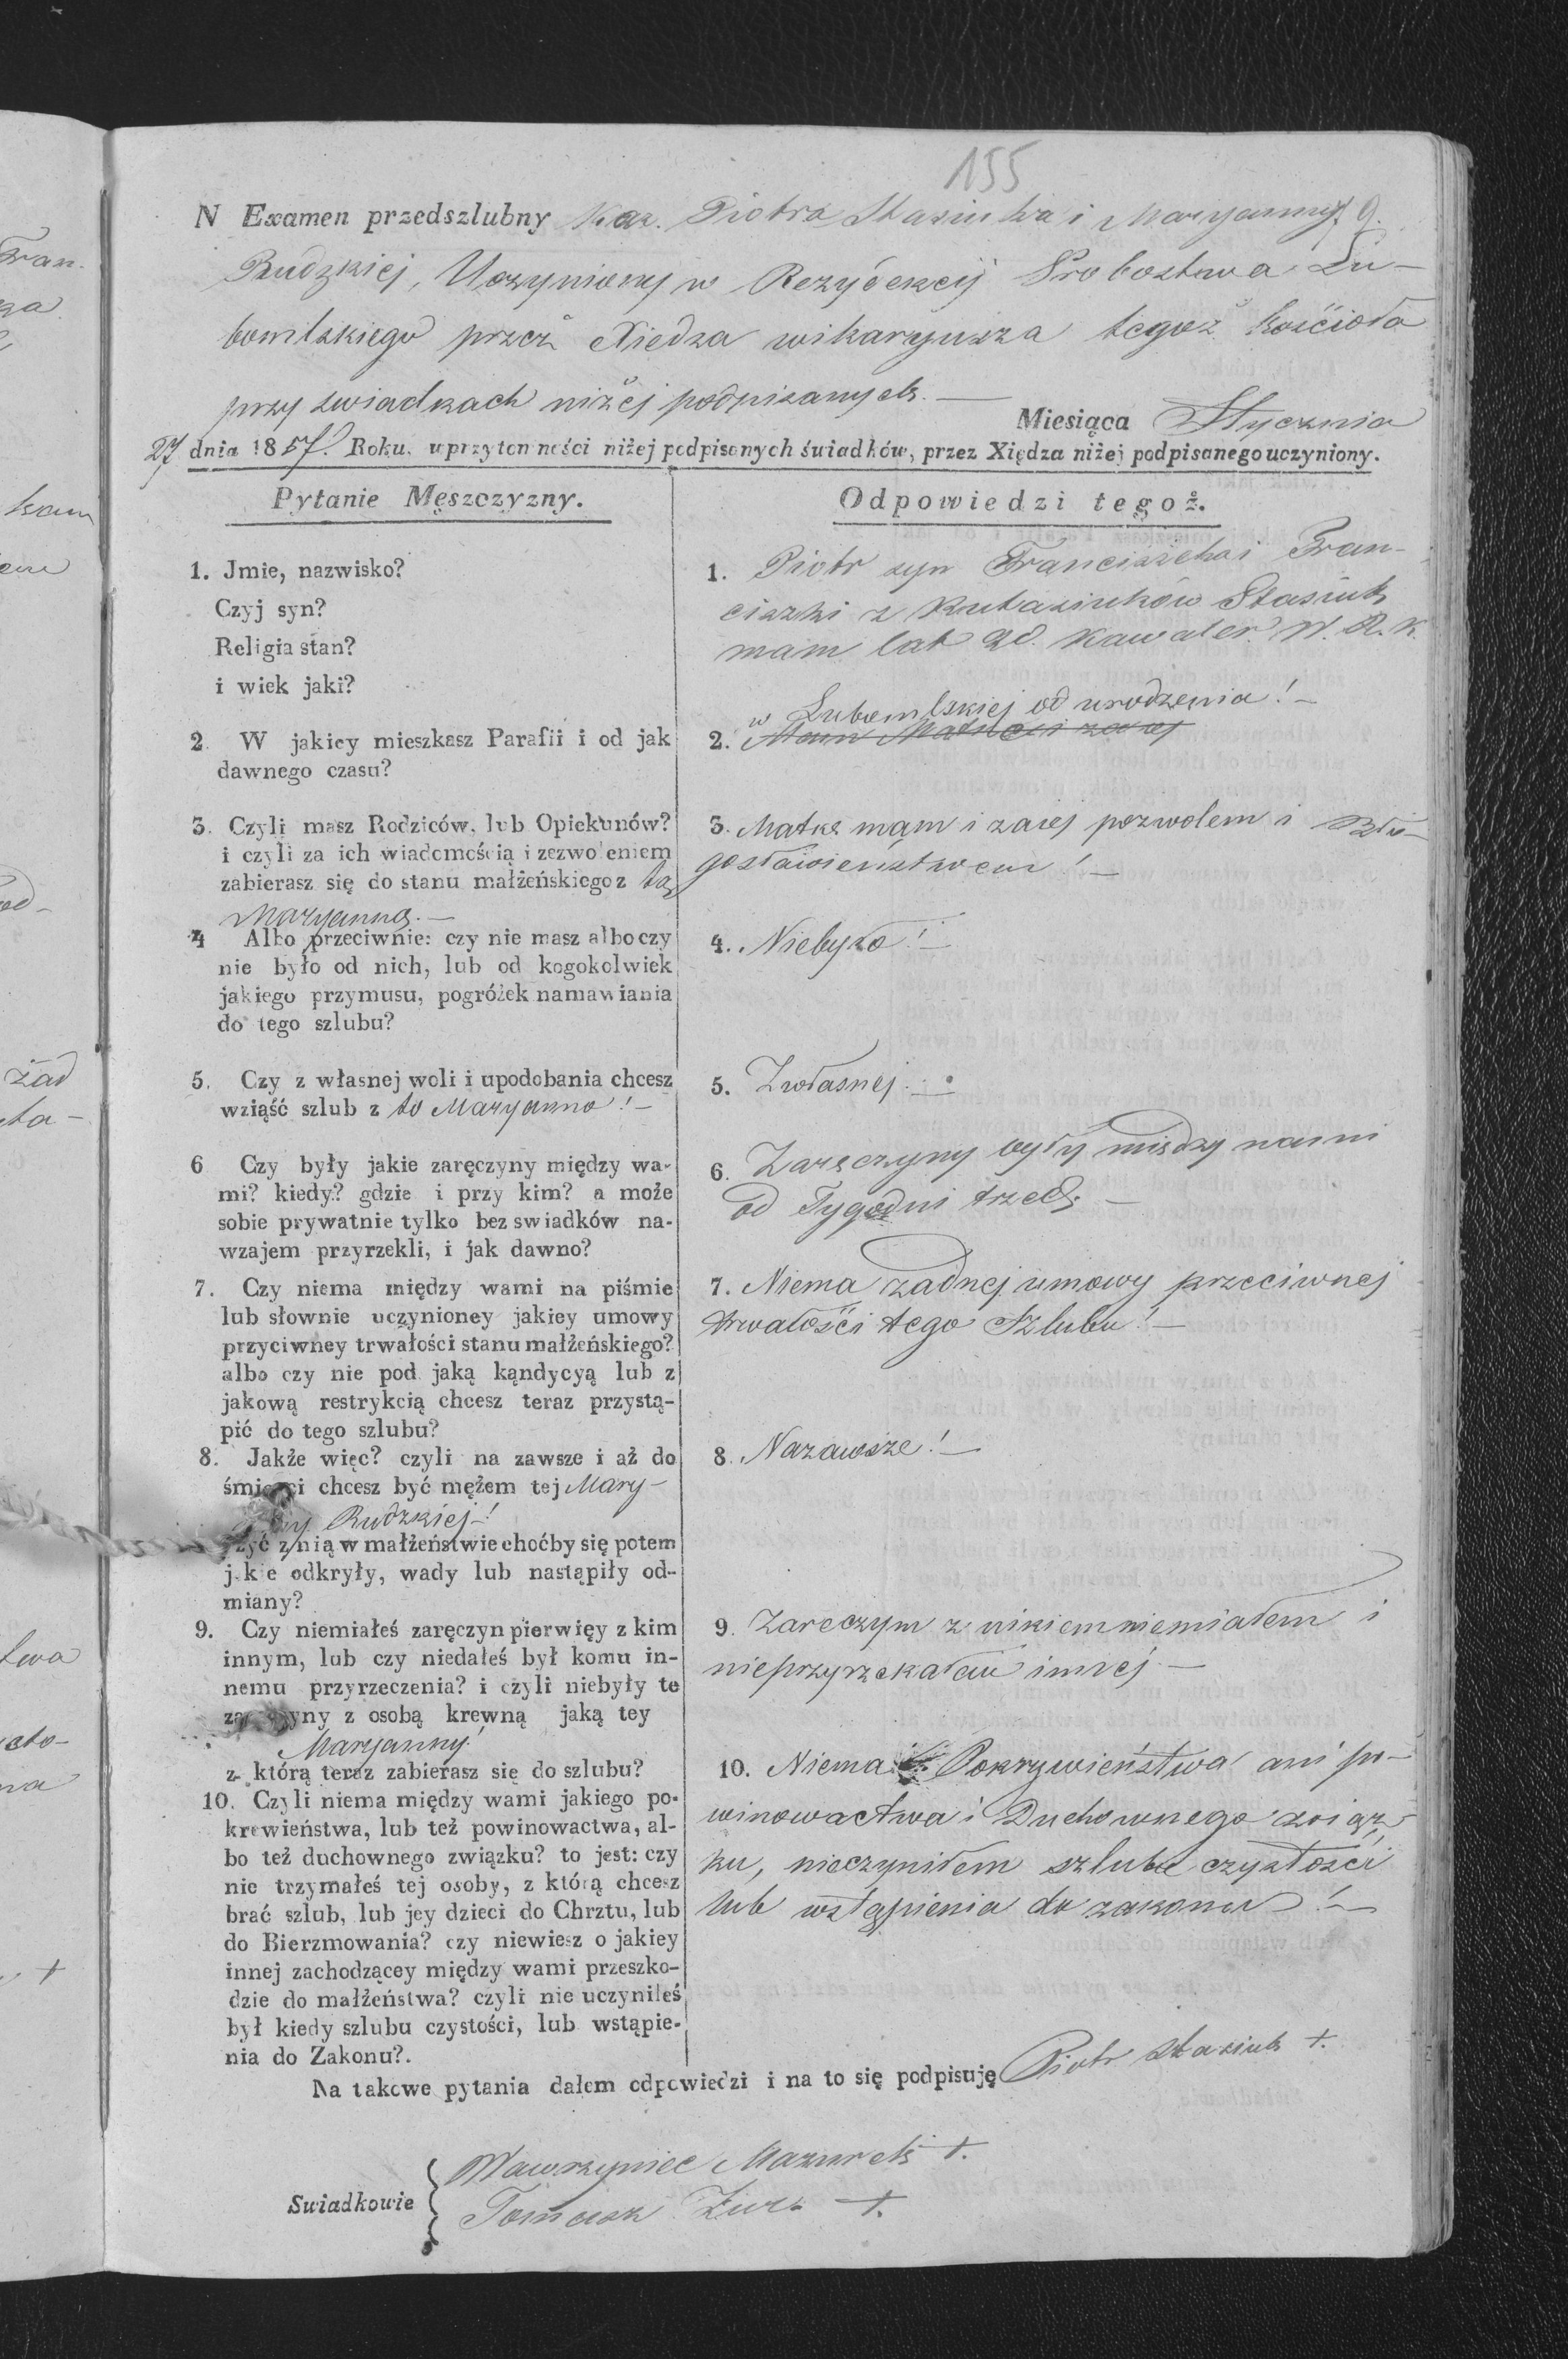 155
N Examen przedszlubny Kaw. Piotra Stasiuka i Maryanny
Rudzkiej, Uczyniony w Rezydencij Probostwa Lu-
bomlskiego przez Xiedza wikaryusza tegoż kościoła
przy swiadkach niżej podpisanych. —
Miesiąca Stycznia
27 dnia 1857. Roku. w przytomności niżej podpisanych świadków, przez Xiędza niżej podpisanego uczyniony.
Pytanie Męszczyzny.
1. Jmie, nazwisko?
Czyj syn?
Religia stan?
i wiek jaki?
2. W jakiey mieszkasz Parafii i od jak
dawnego czasu?
3. Czyli masz Rodziców, lub Opiekunów?
i czyli za ich wiadomością i zezwoleniem
zabierasz się do stanu małżeńskiego z tą
Maryanną. —
4 Albo przeciwnie: czy nie masz albo czy
nie było od nich, lub od kogokolwiek
jakiego przymusu, pogróżek namawiania
do tego szlubu?
5. Czy z własnej woli i upodobania chcesz
wziąść szlub z to Maryanno! —
6 Czy były jakie zaręczyny między wa-
mi? kiedy? gdzie i przy kim? a może
sobie prywatnie tylko bez swiadków na-
wzajem przyrzekli, i jak dawno?
7. Czy niema między wami na piśmie
lub słownie uczynioney jakiey umowy
przyciwney trwałości stanu małżeńskiego?
albo czy nie pod jaką kąndycyą lub z
jakową restrykcią chcesz teraz przystą-
pić do tego szlubu?
8. Jakże więc? czyli na zawsze i aż do
śmierci chcesz być mężem tej Mary-
Rudzkiej! —
żyć z nią w małżeństwie choćby się potem
jakie odkryły, wady lub nastąpiły od-
miany?
9. Czy niemiałeś zaręczyn pierwięy z kim
innym, lub czy niedałeś był komu in-
nemu przyrzeczenia? i czyli niebyły te
zaręczyny z osobą krewną jaką tey
Maryanny!
z którą teraz zabierasz się do szlubu?
10. Czyli niema między wami jakiego po-
krewieństwa, lub też powinowactwa, al-
bo też duchownego związku? to jest: czy
nie trzymałeś tej osoby, z którą chcesz
brać szlub, lub jey dzieci do Chrztu, lub
do Bierzmowania? czy niewiesz o jakiey
innej zachodzącey między wami przeszko-
dzie do małżeństwa? czyli nie uczyniłeś
był kiedy szlubu czystości, lub wstąpie-
nia do Zakonu?.
Odpowiedzi tegoż.
1. Piotr syn Franciszka i Fran-
ciszki z Kutasiuków Stasiuk
mam lat kawaler W. R. K.
w Lubomlskiej od urodzenia! —
2. Mam
3. Matkę mąm i zaiej pozwolem i Bło-
gosławieństwem! —
4. Niebyło! —
5. Zwłasnej. —
6. Zaręczyny były między nami
od Tygodni trzech —
7. Niema żadnej umowy przeciwnej
trwałośći tego Szlubu! —
8. Nazawsze! —
9. Zareczym z nikiem niemiałem i
nieprzyrzekałem innej —
10. Niema Pokrywieństwa ani po-
winowactwa i Duchownego związ-
ku, nieczyniłem szlubu czystośći
lub wstąpienia do zakonu! —
Na takowe pytania dałem odpowiedzi i na to się podpisuję Piotr Stasiuk +.
Swiadkowie
Wawrzyniec Mazurek +.
Tomasz Żuk +.